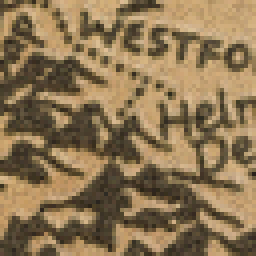 WESTFO
Helm
De